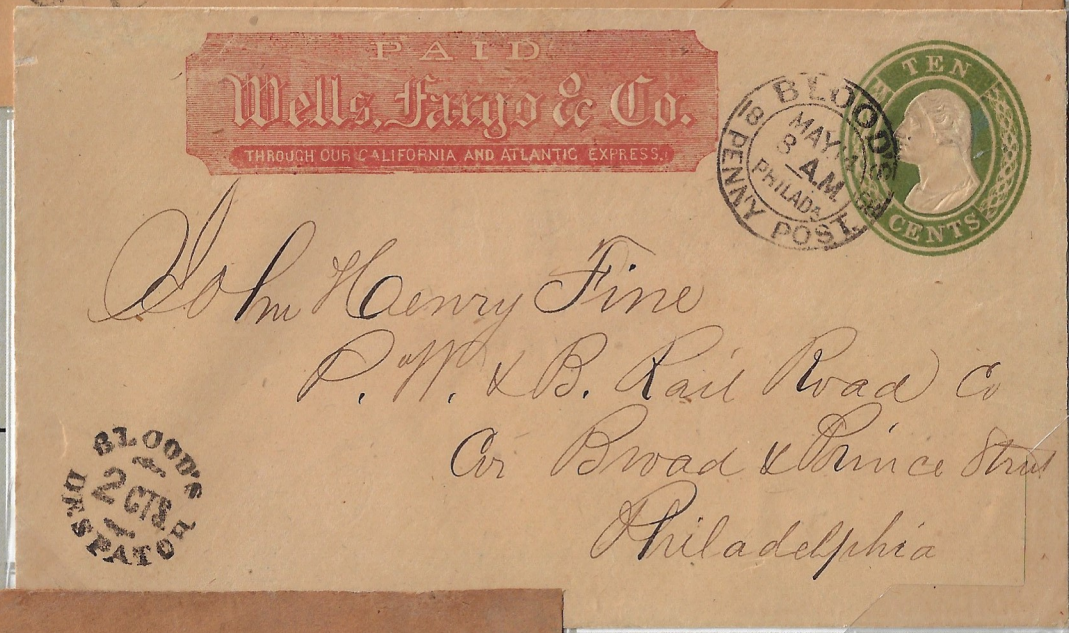 PAID
Wells, Fargo & Co.
THROUGH OUR CALIFORNIA AND ATLANTIC EXPRESS.
BLOOD'S PENNY POST.
MAY
8 A.M.
PHILADA
TEN
CENTS
John Henry Fine
P. W. & B. Rail Road Co
Cor Broad & Prince Street
Philadelphia
BLOOD'S
2 CTS.
DESPATCH